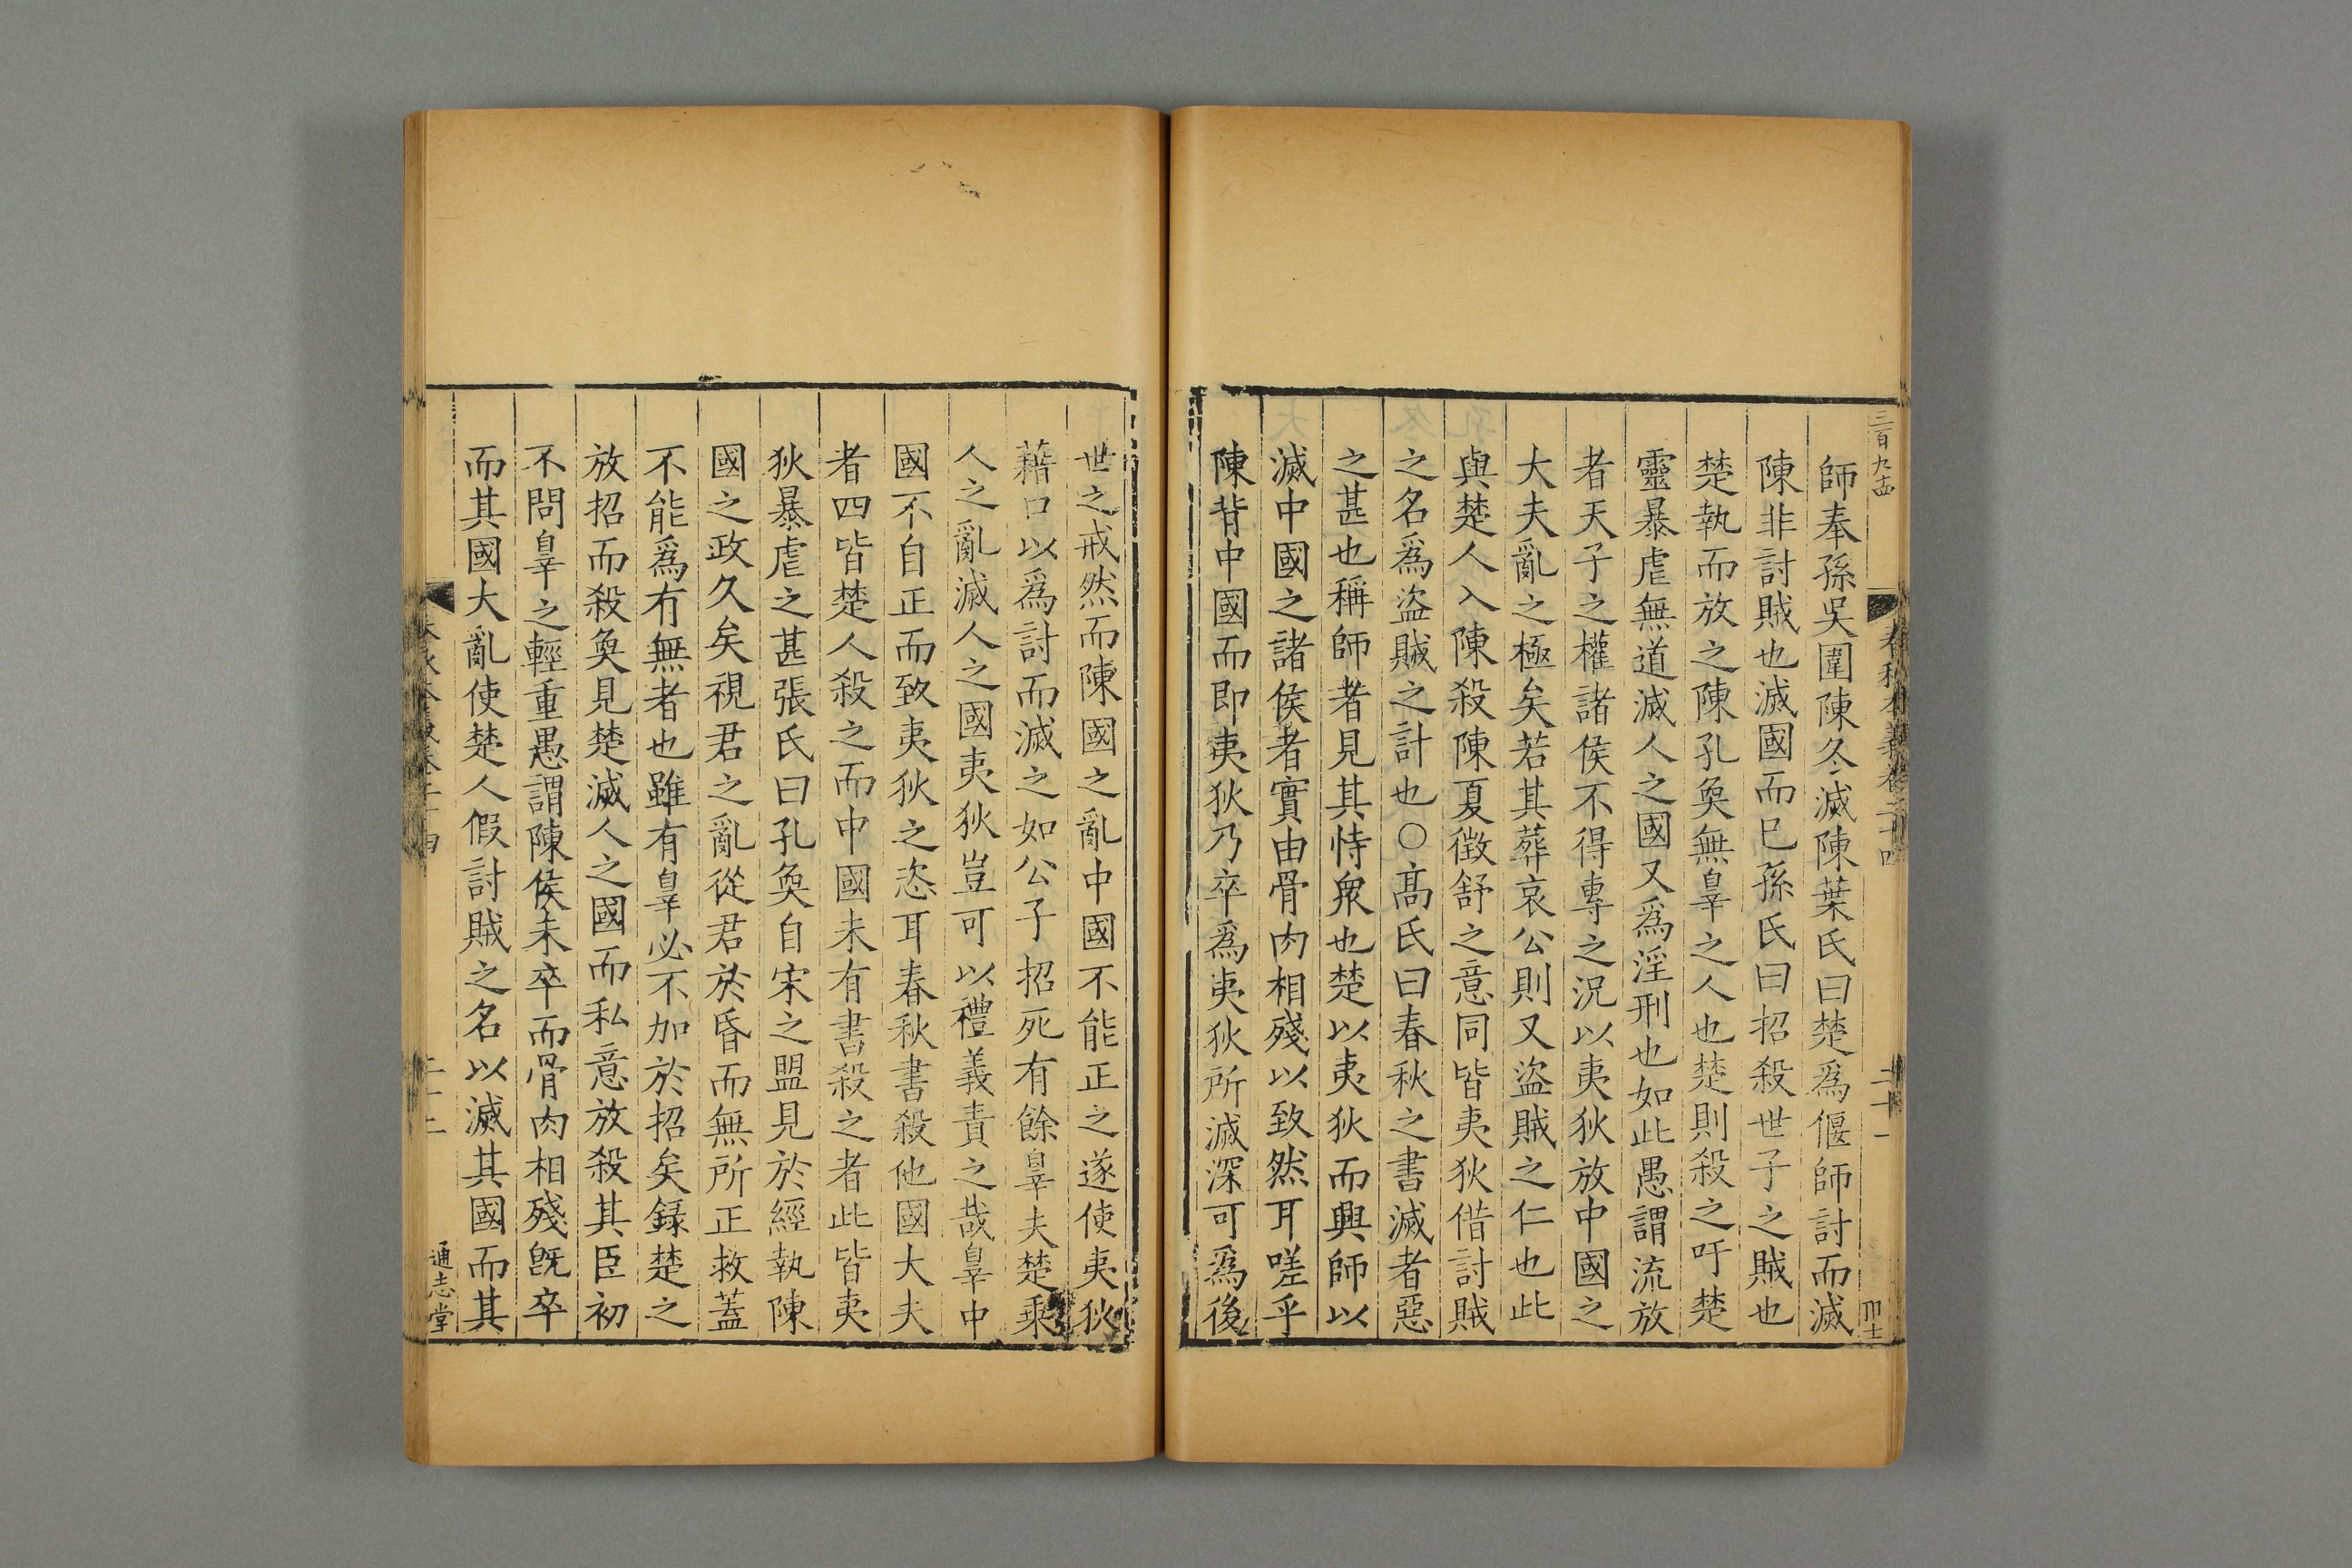 三百九十四
春秋本義卷二十四
二十一
師奉孫吳圍陳冬滅陳葉氏曰楚爲偃師討而滅
陳非討賊也滅國而已孫氏曰招殺世子之賊也
楚執而放之陳孔奐無辠之人也楚則殺之吁楚
靈暴虐無道滅人之國又爲淫刑也如此愚謂流放
者天子之權諸侯不得專之況以夷狄放中國之
大夫亂之極矣若其葬哀公則又盜賊之仁也此
與楚人入陳殺陳夏徵舒之意同皆夷狄借討賊
之名爲盜賊之計也○高氏曰春秋之書滅者惡
之甚也稱師者見其恃衆也楚以夷狄而興師以
滅中國之諸侯者實由骨肉相殘以致然耳嗟乎
陳背中國而即夷狄乃卒爲夷狄所滅深可爲後
世之戒然而陳國之亂中國不能正之遂使夷狄
藉口以爲討而滅之如公子招死有餘辠夫楚乘
人之亂滅人之國夷狄豈可以禮義責之哉辠中
國不自正而致夷狄之恣耳春秋書殺他國大夫
者四皆楚人殺之而中國未有書殺之者此皆夷
狄暴虐之甚張氏曰孔奐自宋之盟見於經執陳
國之政久矣視君之亂從君於昏而無所正救蓋
不能爲有無者也雖有辠必不加於招矣録楚之
放招而殺奐見楚滅人之國而私意放殺其臣初
不問辠之輕重愚謂陳侯未卒而骨肉相殘旣卒
而其國大亂使楚人假討賊之名以滅其國而其
通志堂